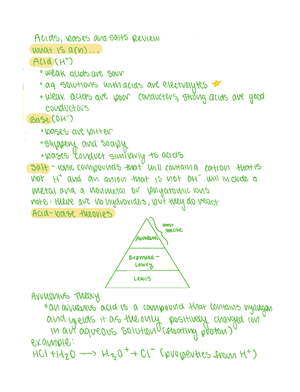 Acids, bases and salts Review
What is a(n)...
Acid (H⁺)
• weak acids are sour
• aq solutions with acids are electrolytes
• weak acids are poor conductors, strong acids are good
conductors
Base (OH⁻)
• bases are bitter
• slippery and soapy
• bases conduct similarly to acids
Salt - ionic compounds that will contain a cation that is
not H⁺ and an anion that is not OH⁻. will include a
metal and a nonmetal or polyatomic ions
note: there are no hydroxides, but they do react
Acid-base theories
most
specific
Arrhenius
Brønsted-
Lowry
Lewis
Arrhenius Theory
• an arrhenius acid is a compound that contains hydrogen
and yields it as the only positively charged ion
in an aqueous solution (donating proton)
example:
HCl + H₂O → H₃O⁺ + Cl⁻ (properties from H⁺)